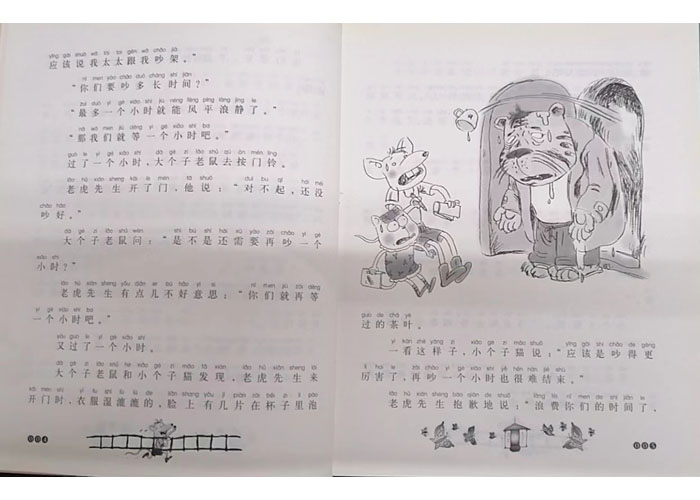 yīng gāi shuō wǒ tài tai gēn wǒ chǎo jià
应该说我太太跟我吵架。”
nǐ men yào chǎo duō cháng shí jiān
“你们要吵多长时间?”
zuì duō yí gè xiǎo shí jiù néng fēng píng làng jìng le
“最多一个小时就能风平浪静了。”
nà wǒ men jiù děng yí gè xiǎo shí ba
“那我们就等一个小时吧。”
guò le yí gè xiǎo shí dà gè zi lǎo shǔ qù àn mén líng
过了一个小时,大个子老鼠去按门铃。
lǎo hǔ xiān sheng kāi le mén tā shuō duì bu qǐ hái méi
老虎先生开了门,他说:“对不起,还没
chǎo hǎo
吵好。”
dà gè zi lǎo shǔ wèn shì bu shì hái xū yào zài chǎo yí gè
大个子老鼠问:“是不是还需要再吵一个
xiǎo shí
小时?”
lǎo hǔ xiān sheng yǒu diǎn er bù hǎo yì si nǐ men jiù zài děng
老虎先生有点儿不好意思:“你们就再等
yí gè xiǎo shí ba
一个小时吧。”
yòu guò le yí gè xiǎo shí
又过了一个小时。
dà gè zi lǎo shǔ hé xiǎo gè zi māo fā xiàn lǎo hǔ xiān sheng lái
大个子老鼠和小个子猫发现,老虎先生来
kāi mén shí yī fu shī lù lù de liǎn shang yǒu jǐ piàn zài bēi zi li pào
开门时,衣服湿漉漉的,脸上有几片在杯子里泡
004
guò de chá yè
过的茶叶。
yí kàn zhè yàng zi xiǎo gè zi māo shuō yīng gāi shì chǎo de gèng
一看这样子,小个子猫说:“应该是吵得更
lì hai le zài chǎo yí gè xiǎo shí yě hěn nán jié shù
厉害了,再吵一个小时也很难结束。”
lǎo hǔ xiān sheng bào qiàn de shuō làng fèi nǐ men de shí jiān le
老虎先生抱歉地说:“浪费你们的时间了,
005